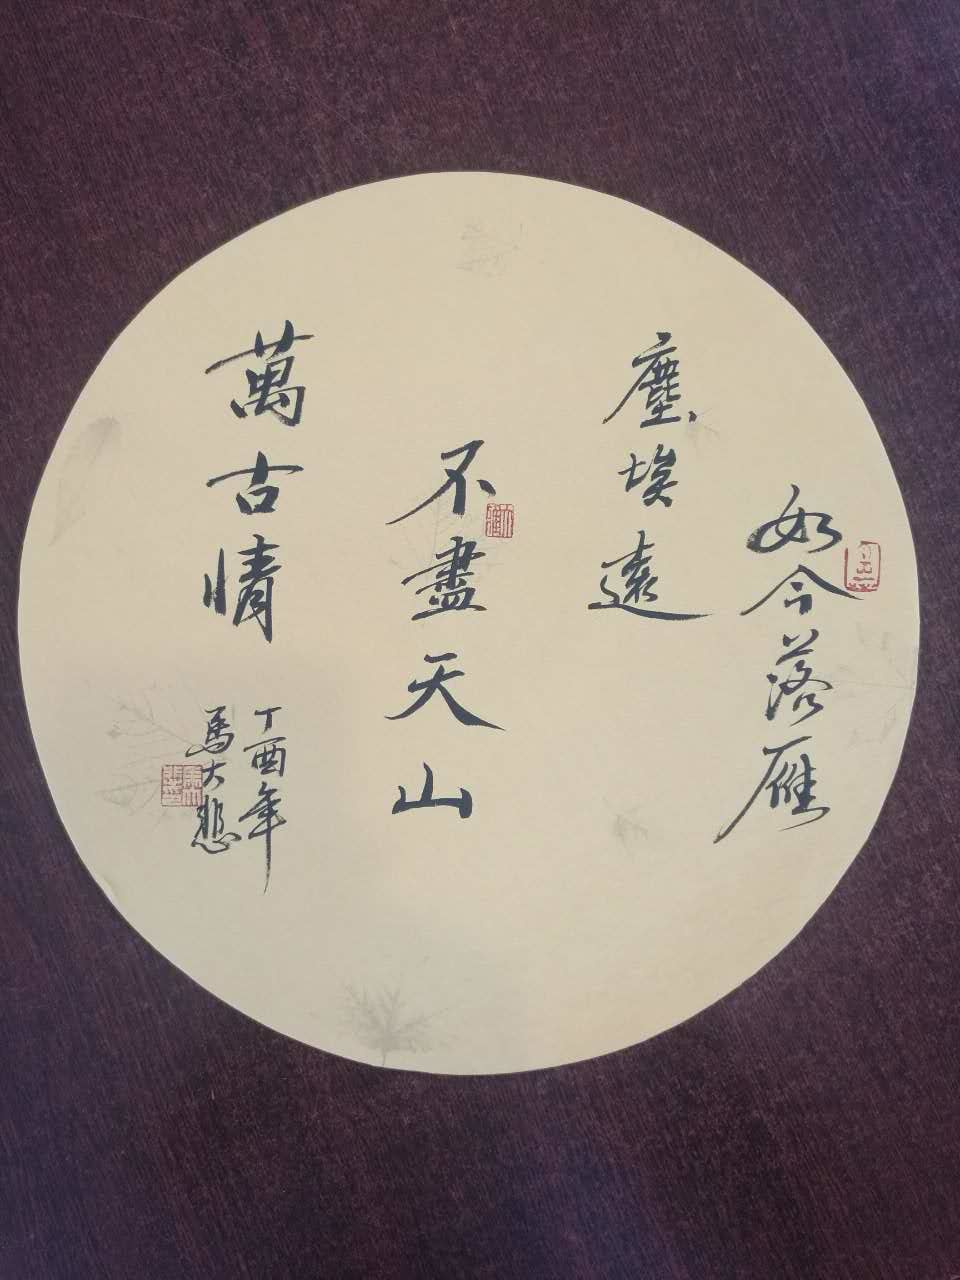 如今落雁
塵埃遠
不盡天山
萬古情
丁酉年
馬大悲